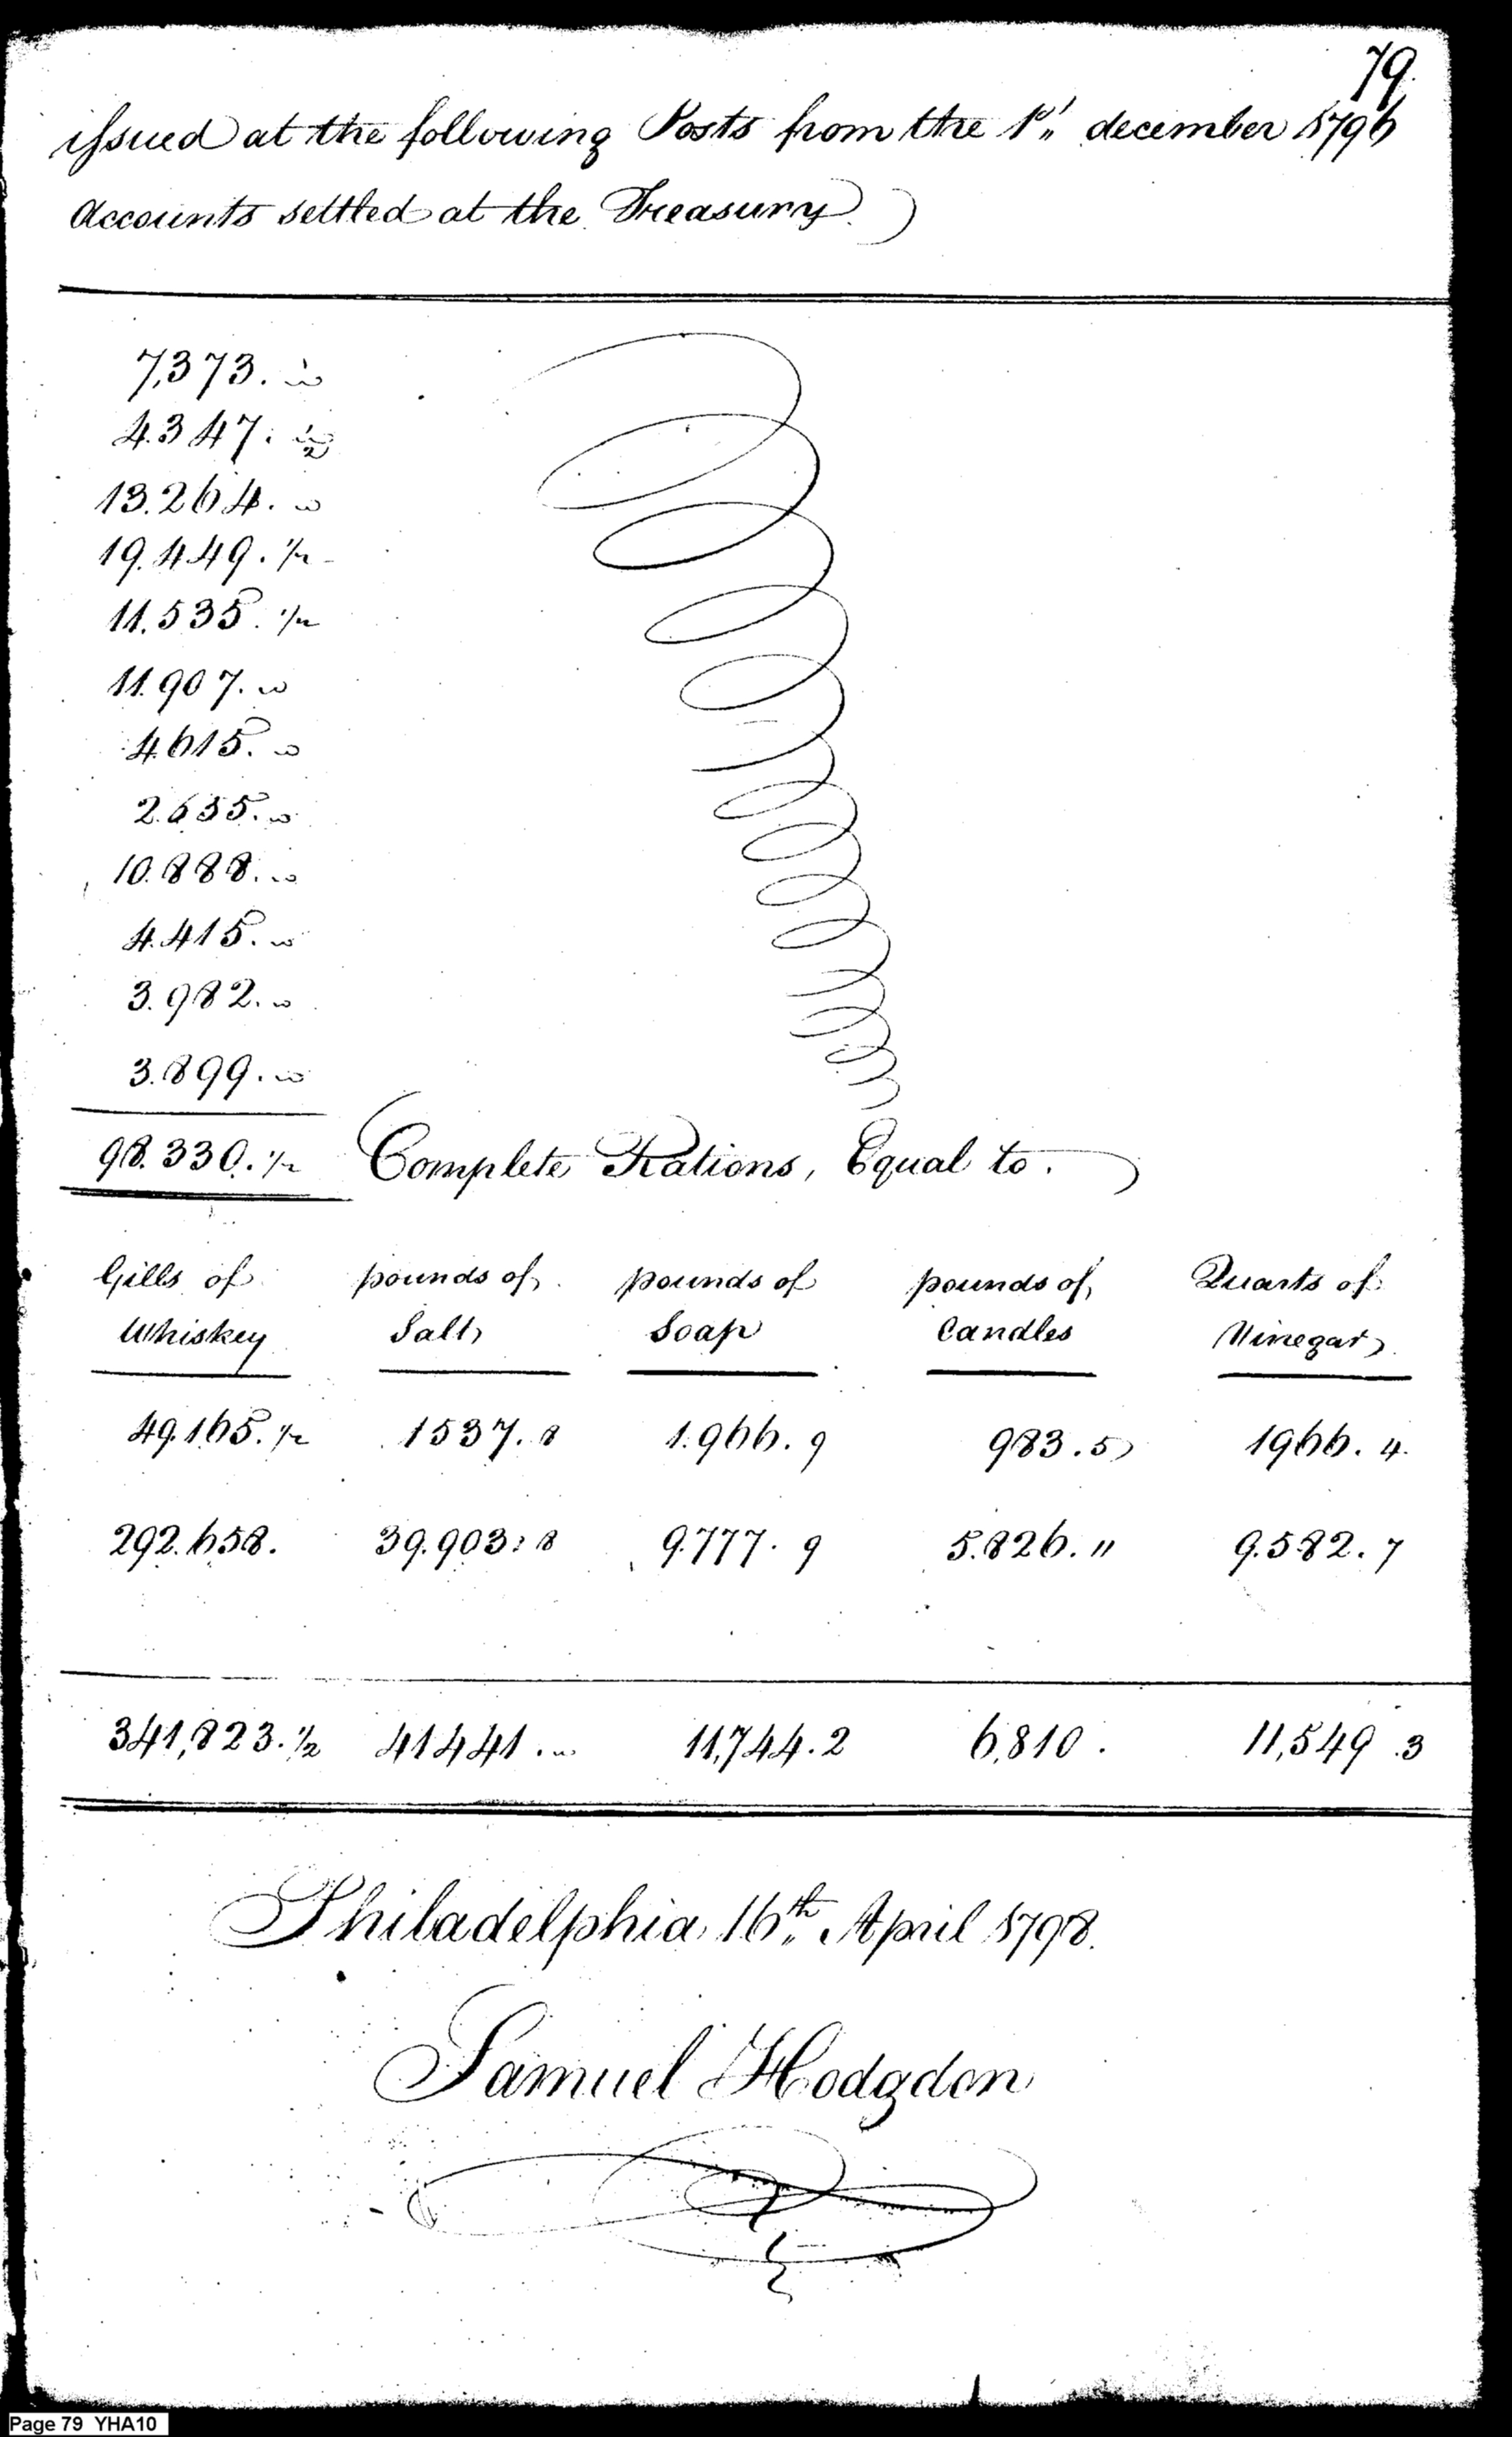 79
issued at the following Posts from the 1st december 1796
Accounts settled at the Treasury.)
7,373. "
4.347. 1/2
13.264. "
19.449. 1/2
11.535. 1/2
11.907. "
4.615. "
2.655. "
10.888. "
4.415. "
3.982. "
3.899. "
98.330. 1/2 Complete Rations, Equal to.
Gills of pounds of pounds of pounds of Quarts of
Whiskey Salt Soap Candles Vinegar
49.165. 1/2 1537. 8 1.966. 9 983. 5 1966. 4
292.658. 39.903: 8 9.777. 9 5.826. " 9.582. 7
341,823. 1/2 41441. " 11,744. 2 6,810. 11,549 .3
Philadelphia 16th April 1798.
Samuel Hodgdon
Page 79 YHA10